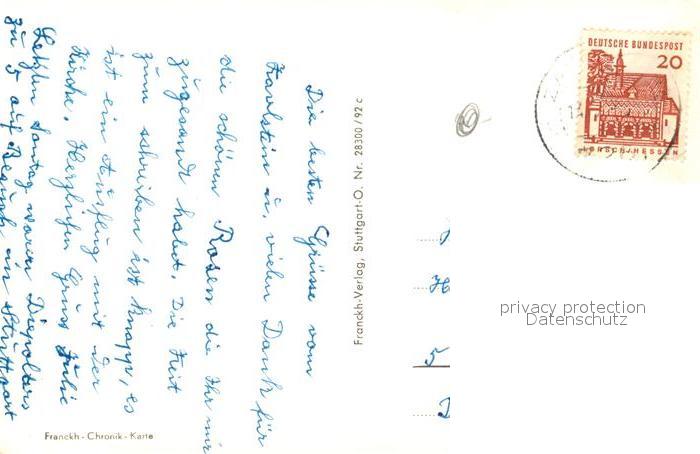 Die besten Grüsse vom
Karlstein u. vielen Dank für
die schönen Rosen die Ihr mir
zugesandt habet. Die Zeit
zum schreiben ist knapp, es
ist ein Ausflug mit der
Kirche. Herzlichen Gruss Julie
Letzten Sontag waren Diepolters
zu 5 auf Besuch in Stuttgart
Franckh-Chronik-Karte
Franckh-Verlag, Stuttgart-O. Nr. 28300/92 c
DEUTSCHE BUNDESPOST
20
LORSCH/HESSEN
5
privacy protection
Datenschutz